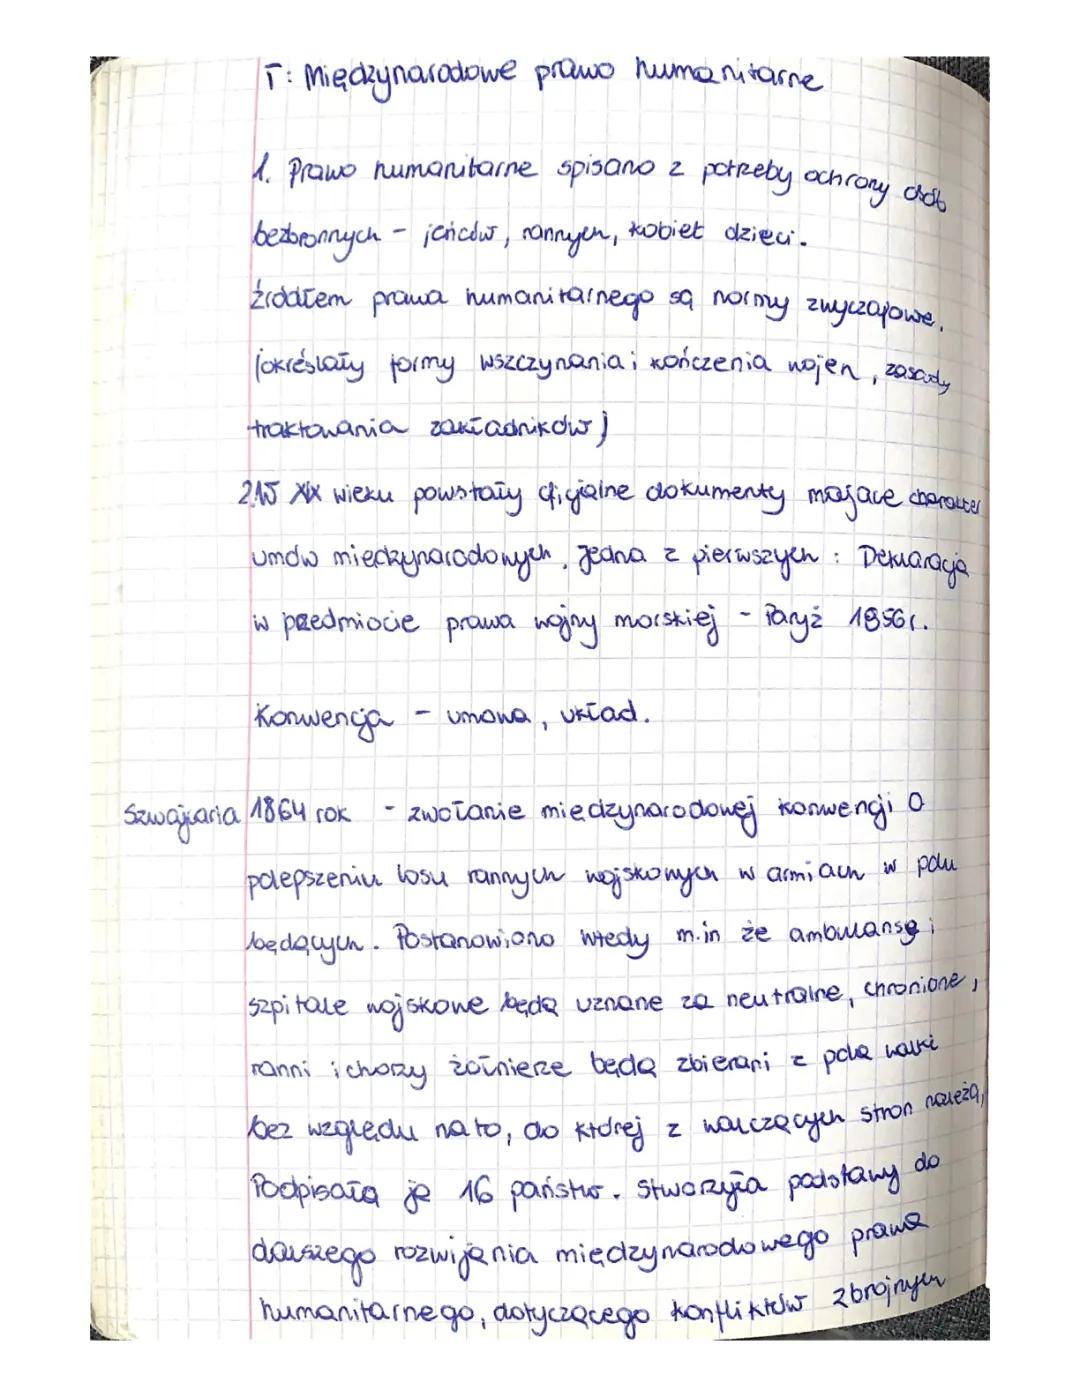 T: Międzynarodowe prawo humanitarne
1. Prawo humanitarne spisano z potrzeby ochrony osób
bezbronnych - jeńców, rannych, kobiet dzieci.
źródłem prawa humanitarnego są normy zwyczajowe.
(określały formy wszczynania i kończenia wojen, zasady
traktowania zakładników)
2. W XIX wieku powstały oficjalne dokumenty mające charakter
umów międzynarodowych. Jedna z pierwszych: Deklaracja
w przedmiocie prawa wojny morskiej - Paryż 1856r.
Konwencja - umowa, układ.
Szwajcaria 1864 rok - zwołanie międzynarodowej konwencji o
polepszeniu losu rannych wojskowych w armiach w polu
będących. Postanowiono wtedy m.in że ambulanse i
szpitale wojskowe będą uznane za neutralne, chronione,
ranni i chorzy żołnierze będą zbierani z pola walki
bez względu na to, do której z walczących stron należą,
Podpisała ją 16 państw. Stworzyła podstawy do
dalszego rozwijania międzynarodowego prawa
humanitarnego, dotyczącego konfliktów zbrojnych